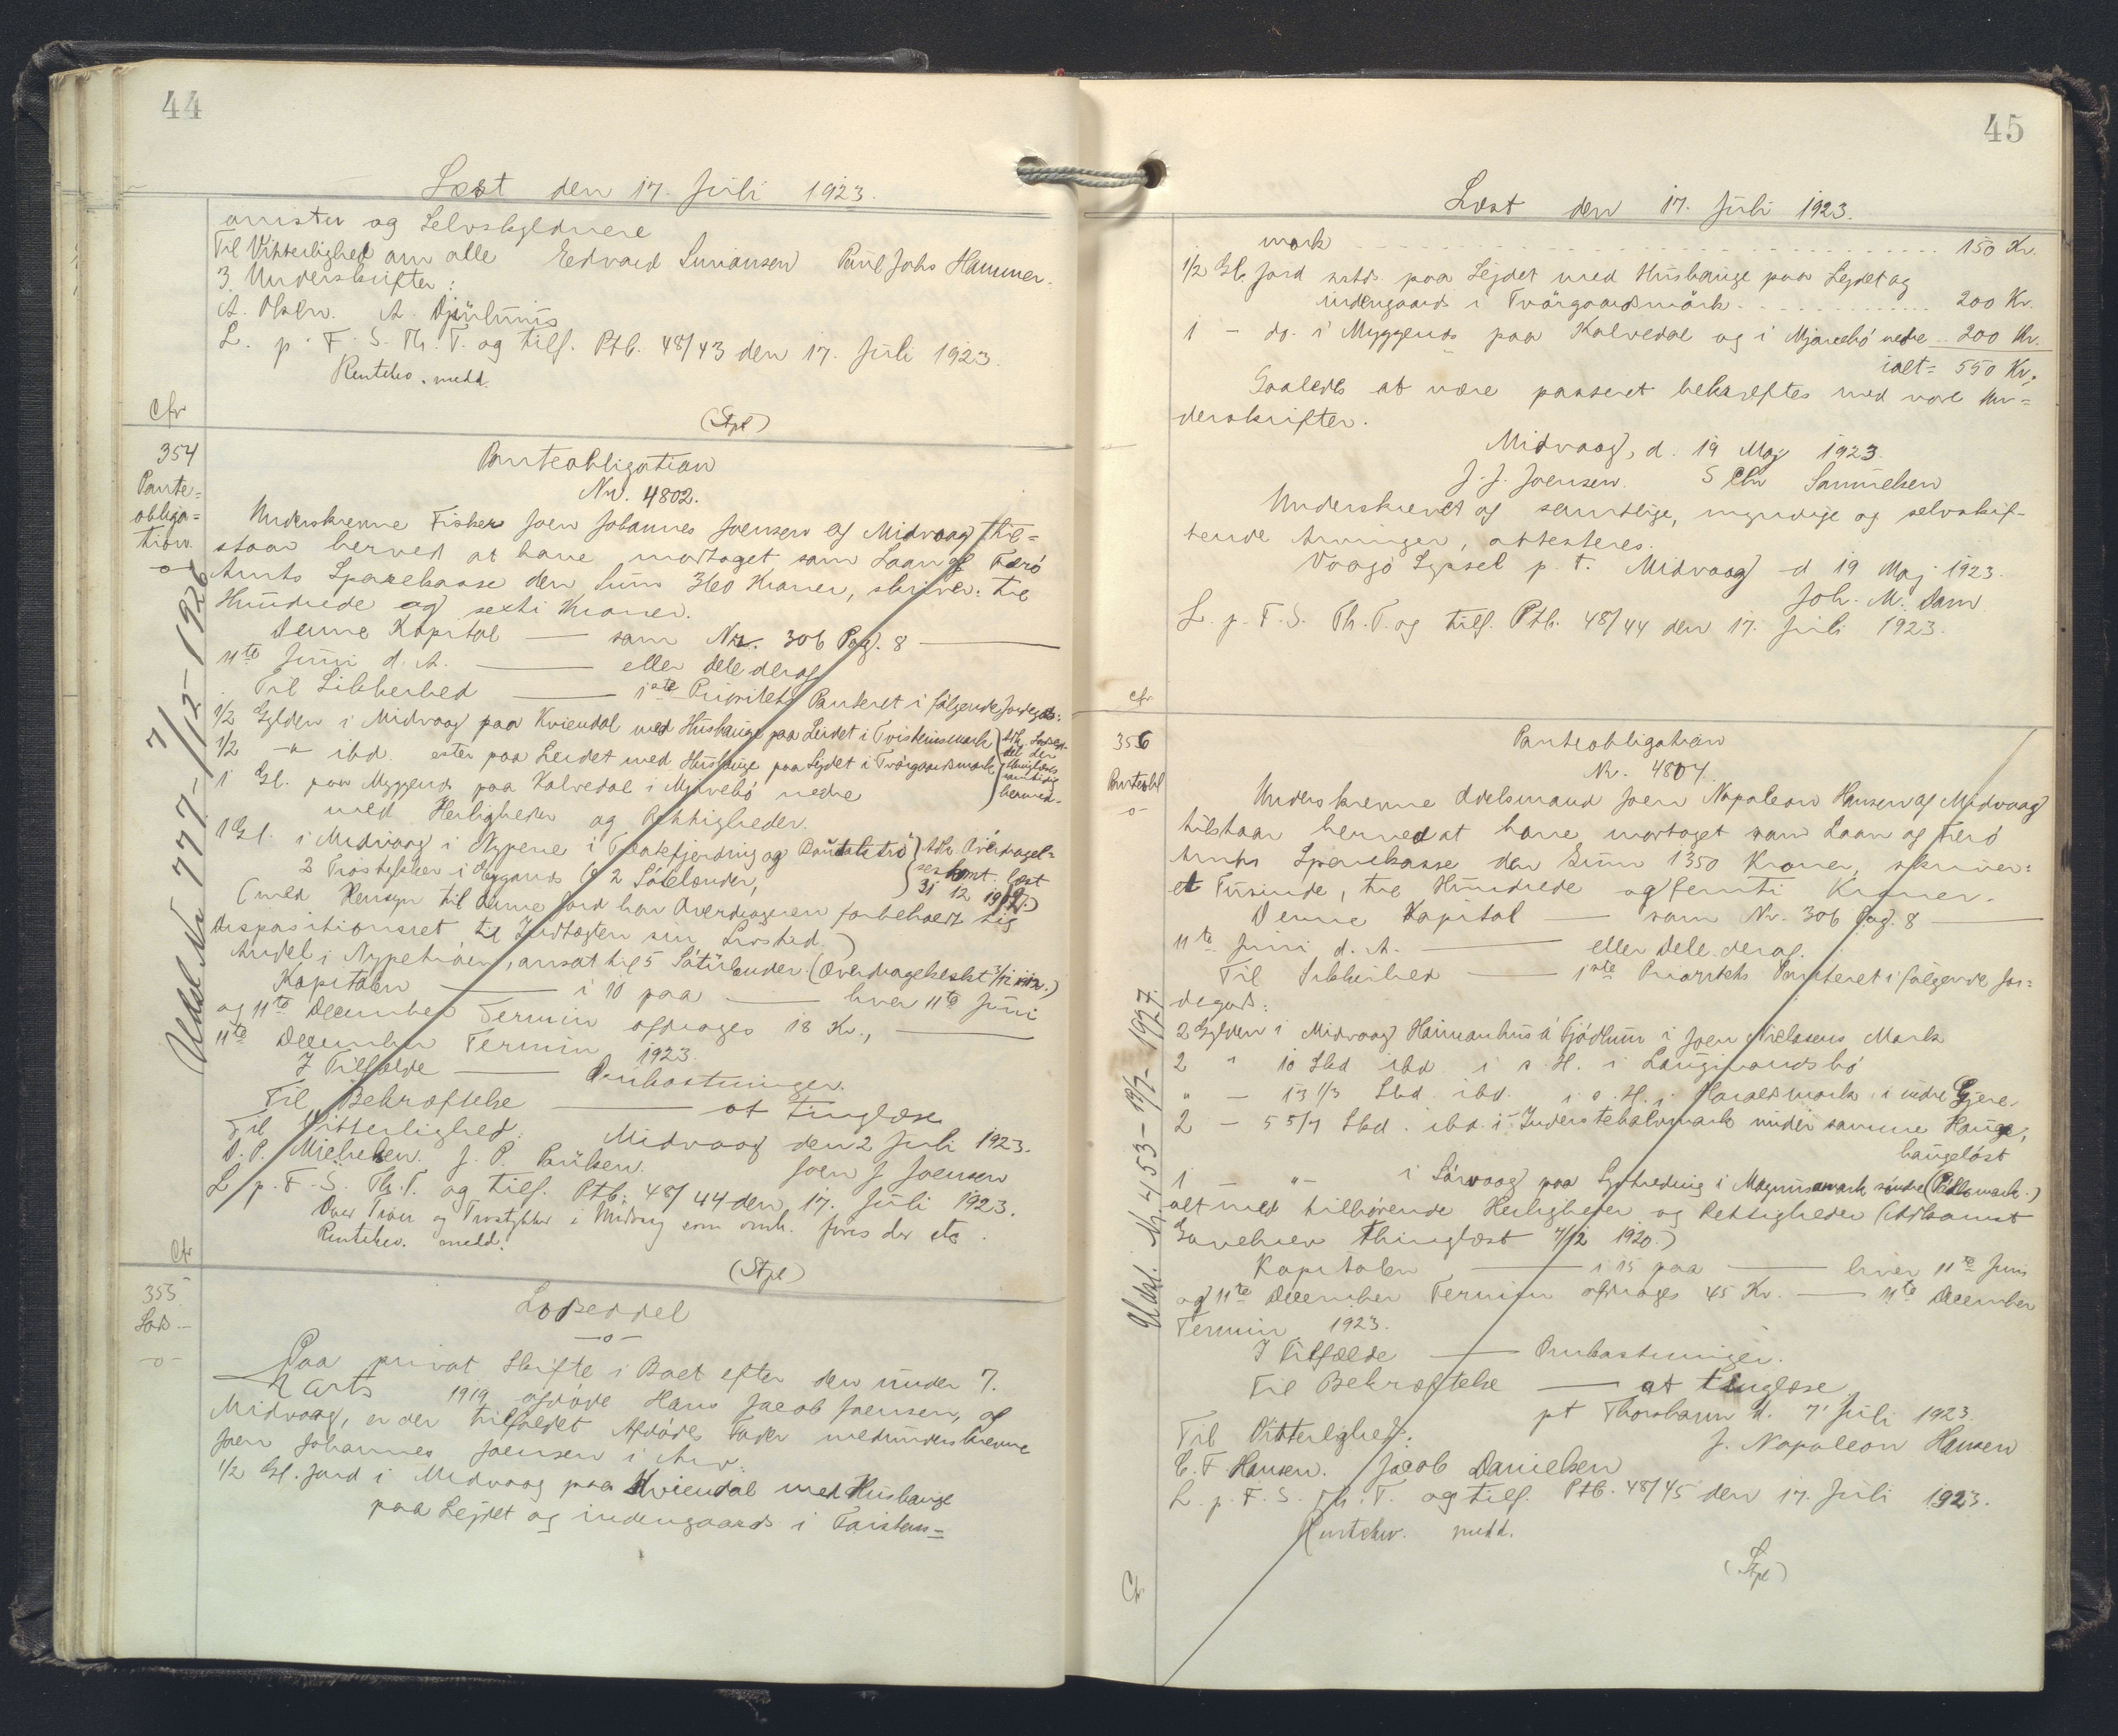 44
Læst den 17. Juli 1923.
amister og Selvskyldnere
Til Vitterlighed om alle Edvard Simonsen Paul Johs Hammer.
3 Underskrifter:
A. Olsen. A. Djurhuus
L. p. F. S. Th. T. og tilf. Ptb. 48/43 den 17. Juli 1923.
Rentebev. medd.
Cfr
(Stpl)
354
Pante=
obliga=
tion.
-o-
Udsl. No 777 - 7/12 - 1926
Panteobligation
Nr. 4802.
Underskrevne Fisker Joen Johannes Joensen af Midvaag til=
staar herved at have modtaget som Laan af Færø
Amts Sparekasse den Sum 360 Kroner, skriver: tre
Hundrede og sexti Kroner.
Denne Kapital — som Nr. 306 Pag. 8 —
11te Juni d. A. — eller dele deraf
Til Sikkerhed — 1ste Prioritets Panteret i følgende Jordegods:
1/2 Gylden i Midvaag paa Kviendal med Hushauge paa Leidet i Tvisteinsmark
1/2 -"- ibd. paa Leidet med Hushauge paa Lejdet i Tvørgaardsmark
1 Gl. paa Myggends paa Kalvedal i Mjavebø nedre
med Herligheder og Rettigheder.
1 Gl. i Midvaag i Nypene i
2 Trøstykker i Heygards & 2 Sátelænder,
31 12 1912.)
(med Hensyn til denne Jord har Overdrageren forbeholdt sig
dispositionsret til Indtægten sin Livstid.)
Andel i Nypetrøen, ansat til 5 Sátulænder.
Kapitalen — i 10 paa — hver 11te Juni
og 11te December Termin afdrages 18 Kr., —
11te December Termin 1923.
I Tilfælde — Omkostninger.
Til Bekræftelse — at tinglæse
Midvaag den 2 Juli 1923.
Til Vitterlighed:
D. P. Michelsen. J. P. Poulsen. Joen J Joensen
L. p. F. S. Th. T. og tilf. Ptb. 48/44 den 17. Juli 1923.
Over Trøen og Trøstykker i Midvag som omh. føres der etc.
Rentebev. medd.
Cfr
(Stpl)
355
Lods.-
-o-
Lodseddel
-o-
Paa privat Skifte i Boet efter den under 7.
Marts 1919 afdøde Hans Jacob Joensen, af
Midvaag, er der tilfaldet Afdødes Fader medunderskrevne
Joen Johannes Joensen i Arv:
1/2 Gl. Jord i Midvaag paa Kviendal med Hushauge
paa Lejdet og indengaards i Tvistens=
45
Læst den 17. Juli 1923.
mark . . . . . . . . . . 150 Kr.
1/2 Gl. Jord smstds. paa Lejdet med Hushauge paa Lejdet og
indengaards i Tvørgaardsmørk . . . . . 200 Kr.
1 - do. i Myggends paa Kalvedal og i Mjavebø nedre .. 200 Kr.
ialt = 550 Kr.
Saaledes at være passeret bekræftes med vore Un=
derskrifter.
Midvaag, d. 19 Maj 1923.
J. J. Joensen. S Chr Samuelsen
Underskrevet af samtlige, myndige og selvskif-
tende Arvinger, attesteres.
Vaagø Syssel p. t. Midvaag d 19 Maj 1923.
Joh. M. Dam
L. p. F. S. Th. T. og tilf. Ptb. 48/44 den 17. Juli 1923.
cfr
356
Panteobl
-o-
Udsl. Nr. 453 - 19/7 - 1927.
Panteobligation
Nr. 4804.
Underskrevne Odelsmand Joen Napoleon Hansen af Midvaag
tilstaar herved at have modtaget som Laan af Færø
Amts Sparekasse den Sum 1350 Kroner, skriver:
et Tusinde, tre Hundrede og femti Kroner.
Denne Kapital — som Nr. 306 Pag. 8 —
11te Juni d. A. — eller dele deraf.
Til Sikkerhed — 1ste Prioritets Panteret i følgende Jor=
degods:
2 Gylden i Midvaag Haimanhus á Fjødlum i Joen Nielsens Mark
2 " 10 Skd ibd i s. H. i Laugimandsbø
" - 13 1/3 Skd. ibd. i s. H. i Haraldsmark i nedre Gjere.
2 - 5 5/7 Skd. ibd. i Inderstehalvmark under samme Hauge,
haugeløst
1 - "- i Sørvaag paa Lydhredning i Magnusmark søndre (Pedlsmark.)
alt med tilhørende Herligheder og Rettigheder (Adkomst
Gavebrev thinglæst 7/12 1920.)
Kapitalen — i 15 paa — hver 11te Juni
og 11te December Termin afdrages 45 Kr. — 11te December
Termin 1923.
I Tilfælde — Omkostninger.
Til Bekræftelse — at tinglæse
pt Thorshavn d. 7' Juli 1923.
Til Vitterlighed: J. Napoleon Hansen
C. F Hansen. Jacob Danielsen
L. p. F. S. Th. T. og tilf. Ptb. 48/45 den 17. Juli 1923.
Rentebev. medd.
(Stpl)
Cfr